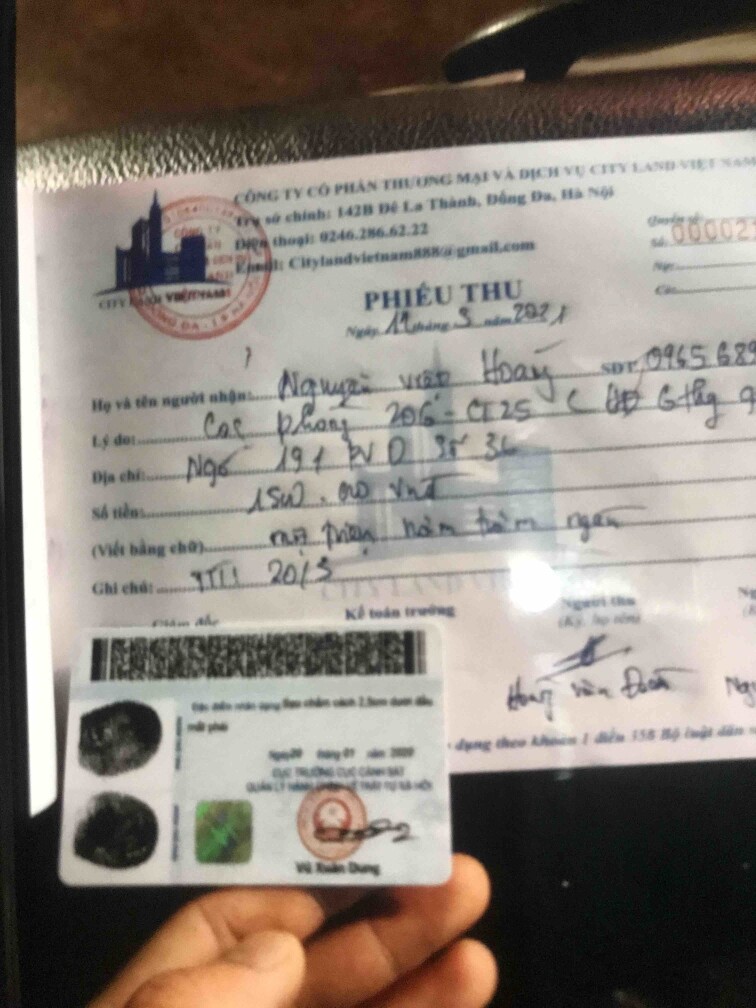 CÔNG TY CỔ PHẦN THƯƠNG MẠI VÀ DỊCH VỤ CITY LAND VIỆT NAM
Trụ sở chính: 142B Đê La Thành, Đống Đa, Hà Nội
Điện thoại: 0246.286.62.22
Email: Citylandvietnam888@gmail.com
CITY LAND VIỆT NAM
Quyển số:
Số: 00002
Nợ:
Có:
PHIẾU THU
Ngày 19 tháng 5 năm 2021
Họ và tên người nhận: Nguyễn Việt Hoàng SĐT: 0965 689
Lý do: Cọc phòng 206 - CT25 C HĐ 6 thg
Địa chỉ: Ngõ 191 số 36
Số tiền: 1500.000 vnđ
(Viết bằng chữ) một triệu năm trăm ngàn
Ghi chú: 20/5
Giám đốc Kế toán trưởng Người thu
(Ký, họ tên)
Hoàng Văn Đoàn
dụng theo khoản 1 điều 358 Bộ luật dân
Đặc điểm nhận dạng: Sẹo chấm cách 2,5cm dưới đầu
mắt phải
Ngày 20 tháng 01 năm 2020
CỤC TRƯỞNG CỤC CẢNH SÁT
QUẢN LÝ HÀNH CHÍNH VỀ TRẬT TỰ XÃ HỘI
Vũ Xuân Dung